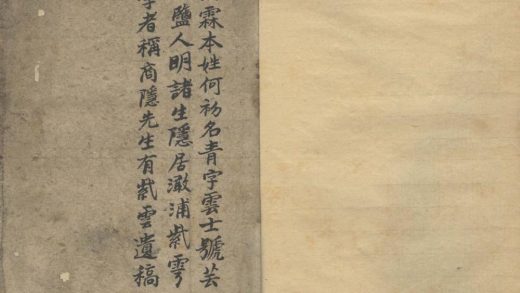 霖本姓何初名青字雲士號芸
鹽人明諸生隱居澉浦紫雲
學者稱商隱先生有紫雲遺稿